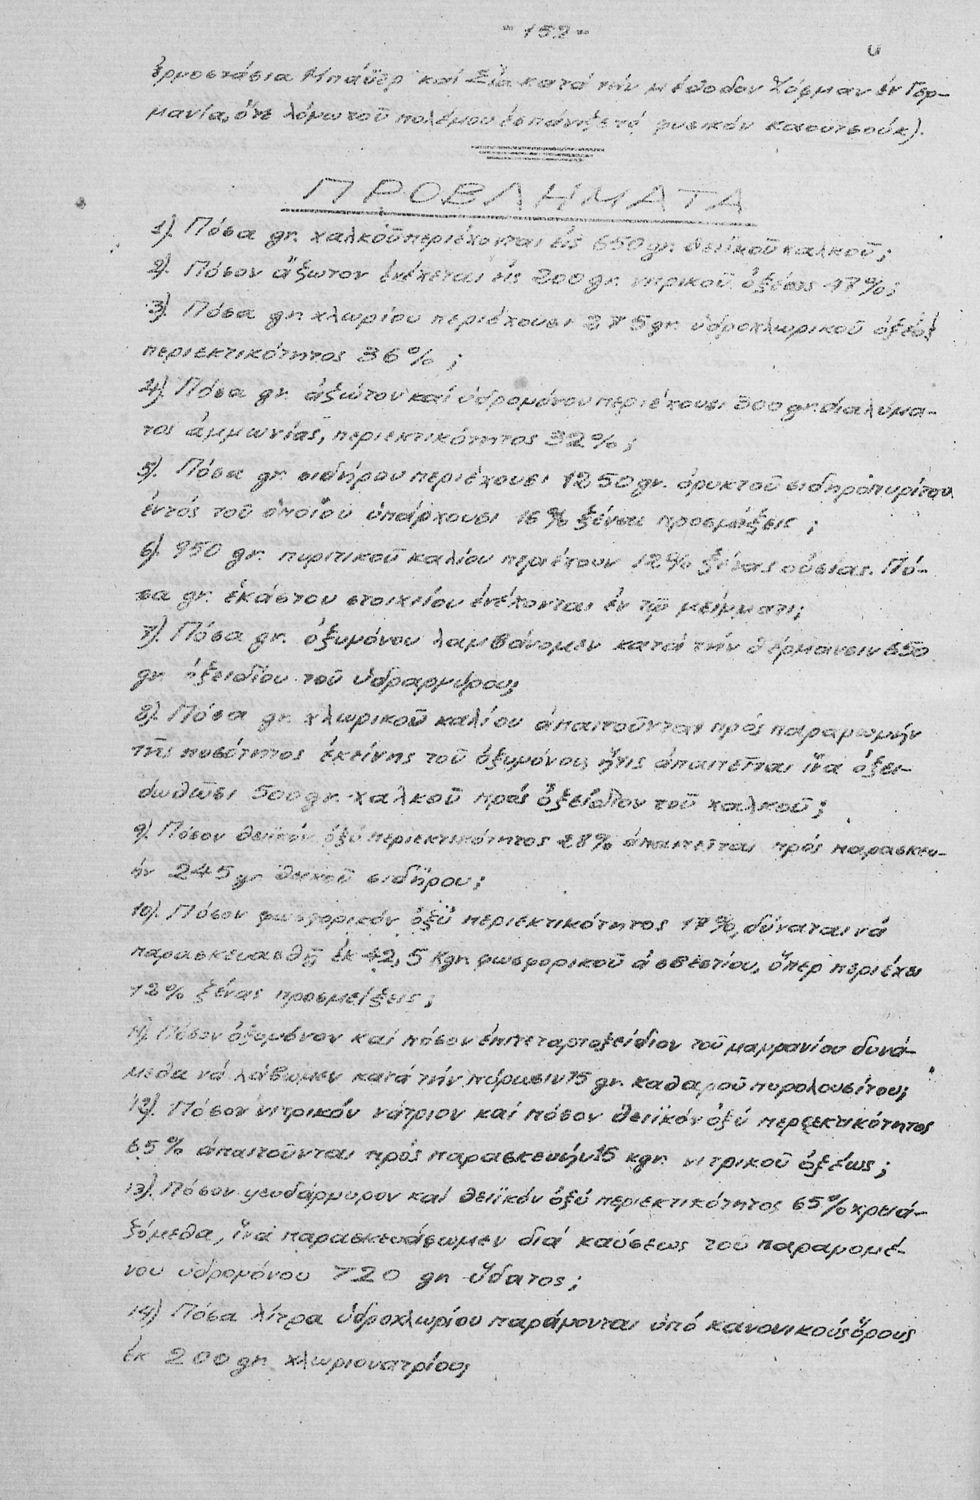 - 152 -
ἐρμοστάσια Μπάϋερ καί Σία κατά τήν μέθοδον Χόφμαν ἐν Γερ-
μανία, ὅτε λόγω τοῦ πολέμου ἐσπάνιζε τό φυσικόν καουτσούκ).
ΠΡΟΒΛΗΜΑΤΑ
1). Πόσα gr. χαλκοῦ περιέχονται εἰς 650 gr. θειϊκοῦ χαλκοῦ;
2). Πόσον ἄζωτον ἐνέχεται εἰς 200 gr. νιτρικοῦ ὀξέως 47%;
3). Πόσα gr. χλωρίου περιέχουσι 375 gr. ὑδροχλωρικοῦ ὀξέος
περιεκτικότητος 36%;
4). Πόσα gr. ἀζώτου καί ὑδρογόνου περιέχουσι 300 gr. διαλύμα-
τος ἀμμωνίας, περιεκτικότητος 32%;
5). Πόσα gr. σιδήρου περιέχουσι 1250 gr. ὀρυκτοῦ σιδηροπυρίτου
ἐντός τοῦ ὁποίου ὑπάρχουσι 16% ξέναι προσμίξεις;
6). 950 gr. πυριτικοῦ καλίου περιέχουν 12% ξένας οὐσίας. Πό-
σα gr. ἑκάστου στοιχείου ἐνέχονται ἐν τῷ μείγματι;
7). Πόσα gr. ὀξυγόνου λαμβάνομεν κατά τήν θέρμανσιν 650
gr. ὀξειδίου τοῦ ὑδραργύρου;
8). Πόσα gr. χλωρικοῦ καλίου ἀπαιτοῦνται πρός παραγωγήν
τῆς ποσότητος ἐκείνης τοῦ ὀξυγόνου, ἥτις ἀπαιτεῖται ἵνα ὀξει-
δωθῶσι 500 gr. χαλκοῦ πρός ὀξείδιον τοῦ χαλκοῦ;
9). Πόσον θειϊκόν ὀξύ περιεκτικότητος 28% ἀπαιτεῖται πρός παρασκευ-
ήν 245 gr θειικοῦ σιδήρου;
10). Πόσον φωσφορικόν ὀξύ περιεκτικότητος 17%, δύναται νά
παρασκευασθῇ ἐκ 42,5 Kgr. φωσφορικοῦ ἀσβεστίου, ὅπερ περιέχει
12% ξένας προσμείξεις;
11). Πόσον ὀξυγόνον καί πόσον ἐπιτεταρτοξείδιον τοῦ μαγγανίου δυνά-
μεθα νά λάβωμεν κατά τήν πύρωσιν 75 gr. καθαροῦ πυρολουσίτου;
12). Πόσον νιτρικόν νάτριον καί πόσον θειϊκόν ὀξύ περιεκτικότητος
65% ἀπαιτοῦνται πρός παρασκευήν 15 kgr. νιτρικοῦ ὀξέως;
13). Πόσον ψευδάργυρον καί θειϊκόν ὀξύ περιεκτικότητος 65% χρεια-
ζόμεθα, ἵνα παρασκευάσωμεν διά καύσεως τοῦ παραγομέ-
νου ὑδρογόνου 720 gr. ὕδατος;
14) Πόσα λίτρα ὑδροχλωρίου παράγονται ὑπό κανονικούς ὅρους
ἐκ 200 gr. χλωριονατρίου;